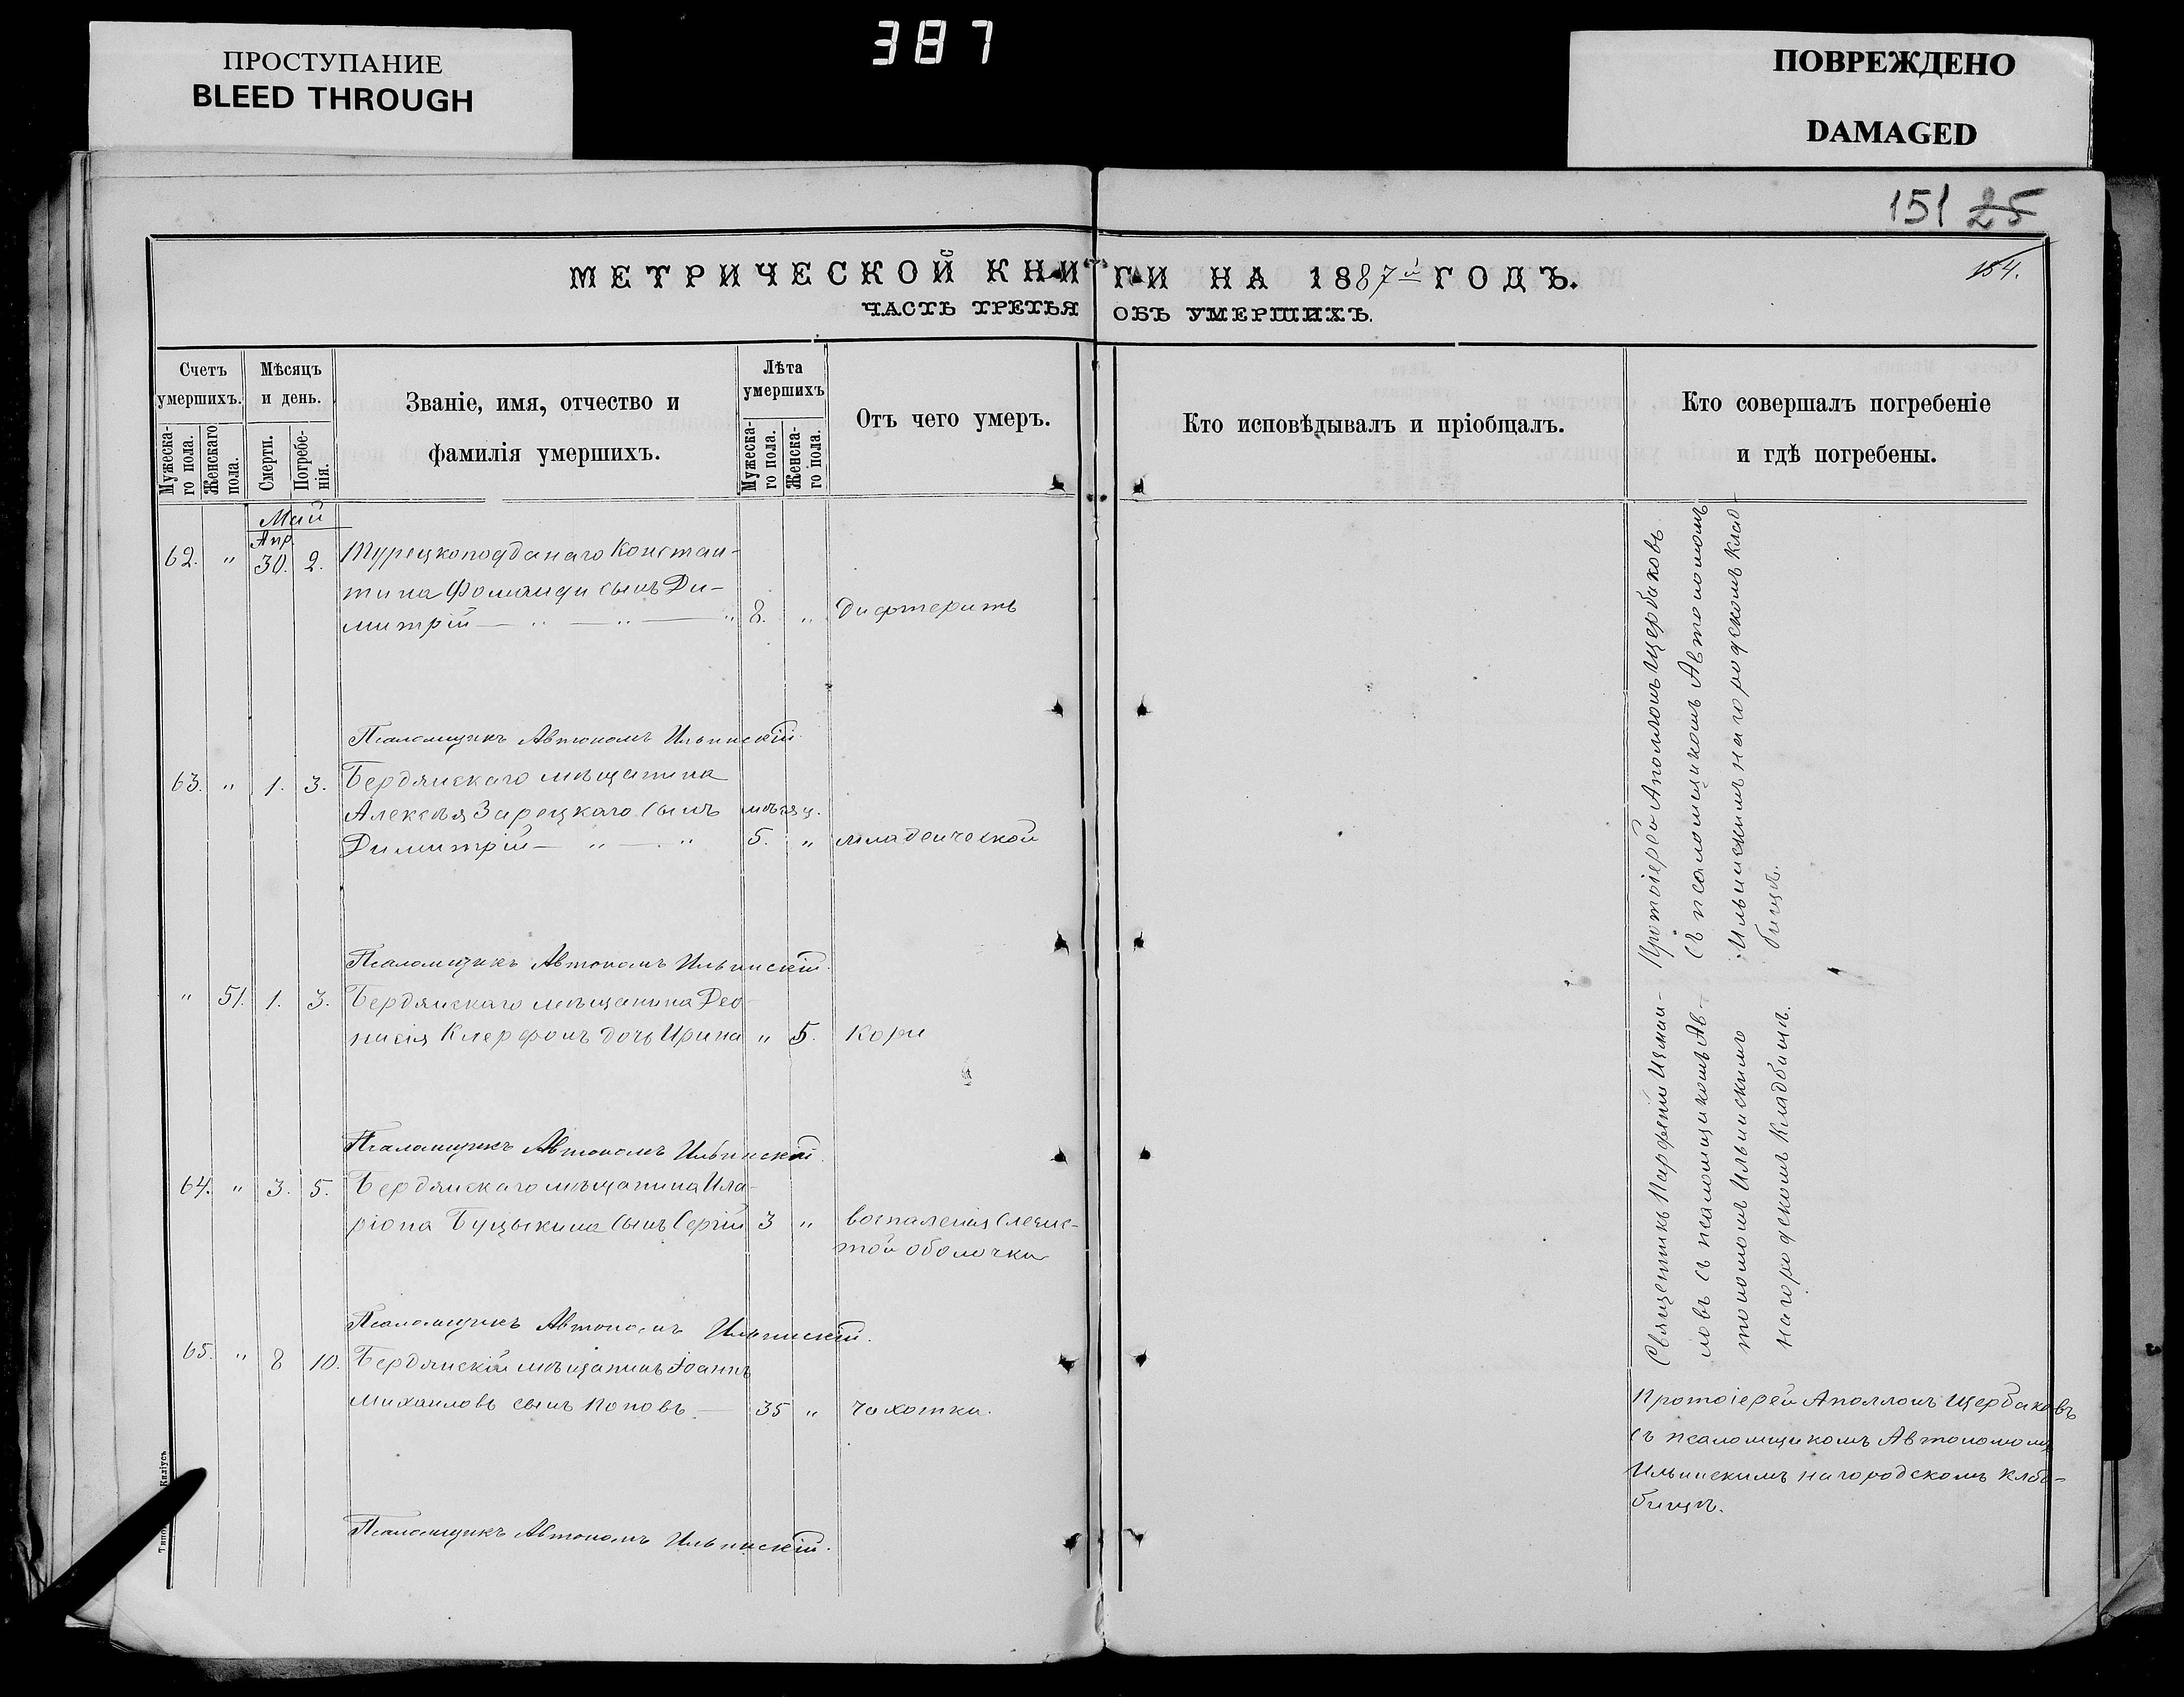 ПРОСТУПАНИЕ
BLEED THROUGH
387
ПОВРЕЖДЕНО
DAMAGED
151 25
154.
МЕТРИЧЕСКОЙ КНИГИ НА 1887й ГОДЪ.
ЧАСТЬ ТРЕТЬЯ ОБЪ УМЕРШИХЪ.
Счетъ умершихъ.
Мужеска-го пола.
Женскаго пола.
Мѣсяцъ и день.
Смерти.
Погребе-нія.
Званіе, имя, отчество и
фамилія умершихъ.
Лѣта умершихъ
Мужеска-го пола.
Женска-го пола.
Отъ чего умеръ.
Кто исповѣдывалъ и пріобщалъ.
Кто совершалъ погребеніе
и гдѣ погребены.
Май
Апр.
62. " 30. 2. Турецкоподданаго Констан-
тина сынъ Ди-
митрій — " — " — " 8. " Дифтеритъ
Псаломщикъ Автономъ Ильинскій.
63. " 1. 3. Бердянскаго мѣщанина
Алексѣя Зарецкаго сынъ мѣсяц.
Димитрій — " — " 5. " младенческой
Протоіерей Аполлонъ Щербаковъ
съ псаломщикомъ Автономомъ
Ильинскимъ на городскомъ клад
бищѣ.
Псаломщикъ Автономъ Ильинскій.
" 51. 1. 3. Бердянскаго мѣщанина Део-
нисія дочь Ирина " 5. Кори
Псаломщикъ Автономъ Ильинскій.
64. " 3. 5. Бердянскаго мѣщанина Ила-
ріона сынъ Сергій 3 " воспаленія слизис-
той оболочки
Священникъ Парфеній
ловъ съ псаломщикомъ Ав-
тономомъ Ильинскимъ
на городскомъ кладбищѣ.
Псаломщикъ Автономъ Ильинскій.
65. " 8 10. Бердянскій мѣщанинъ Іоаннъ
Михаиловъ сынъ Поповъ — 35 " Чахотки.
Протоіерей Аполлонъ Щербаковъ
съ псаломщикомъ Автономомъ
Ильинскимъ на городскомъ клад-
бищѣ.
Псаломщикъ Автономъ Ильинскій.